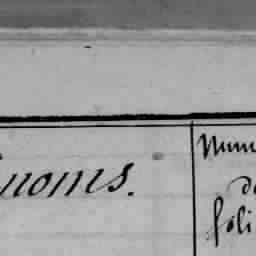 noms.
Num
d
foli